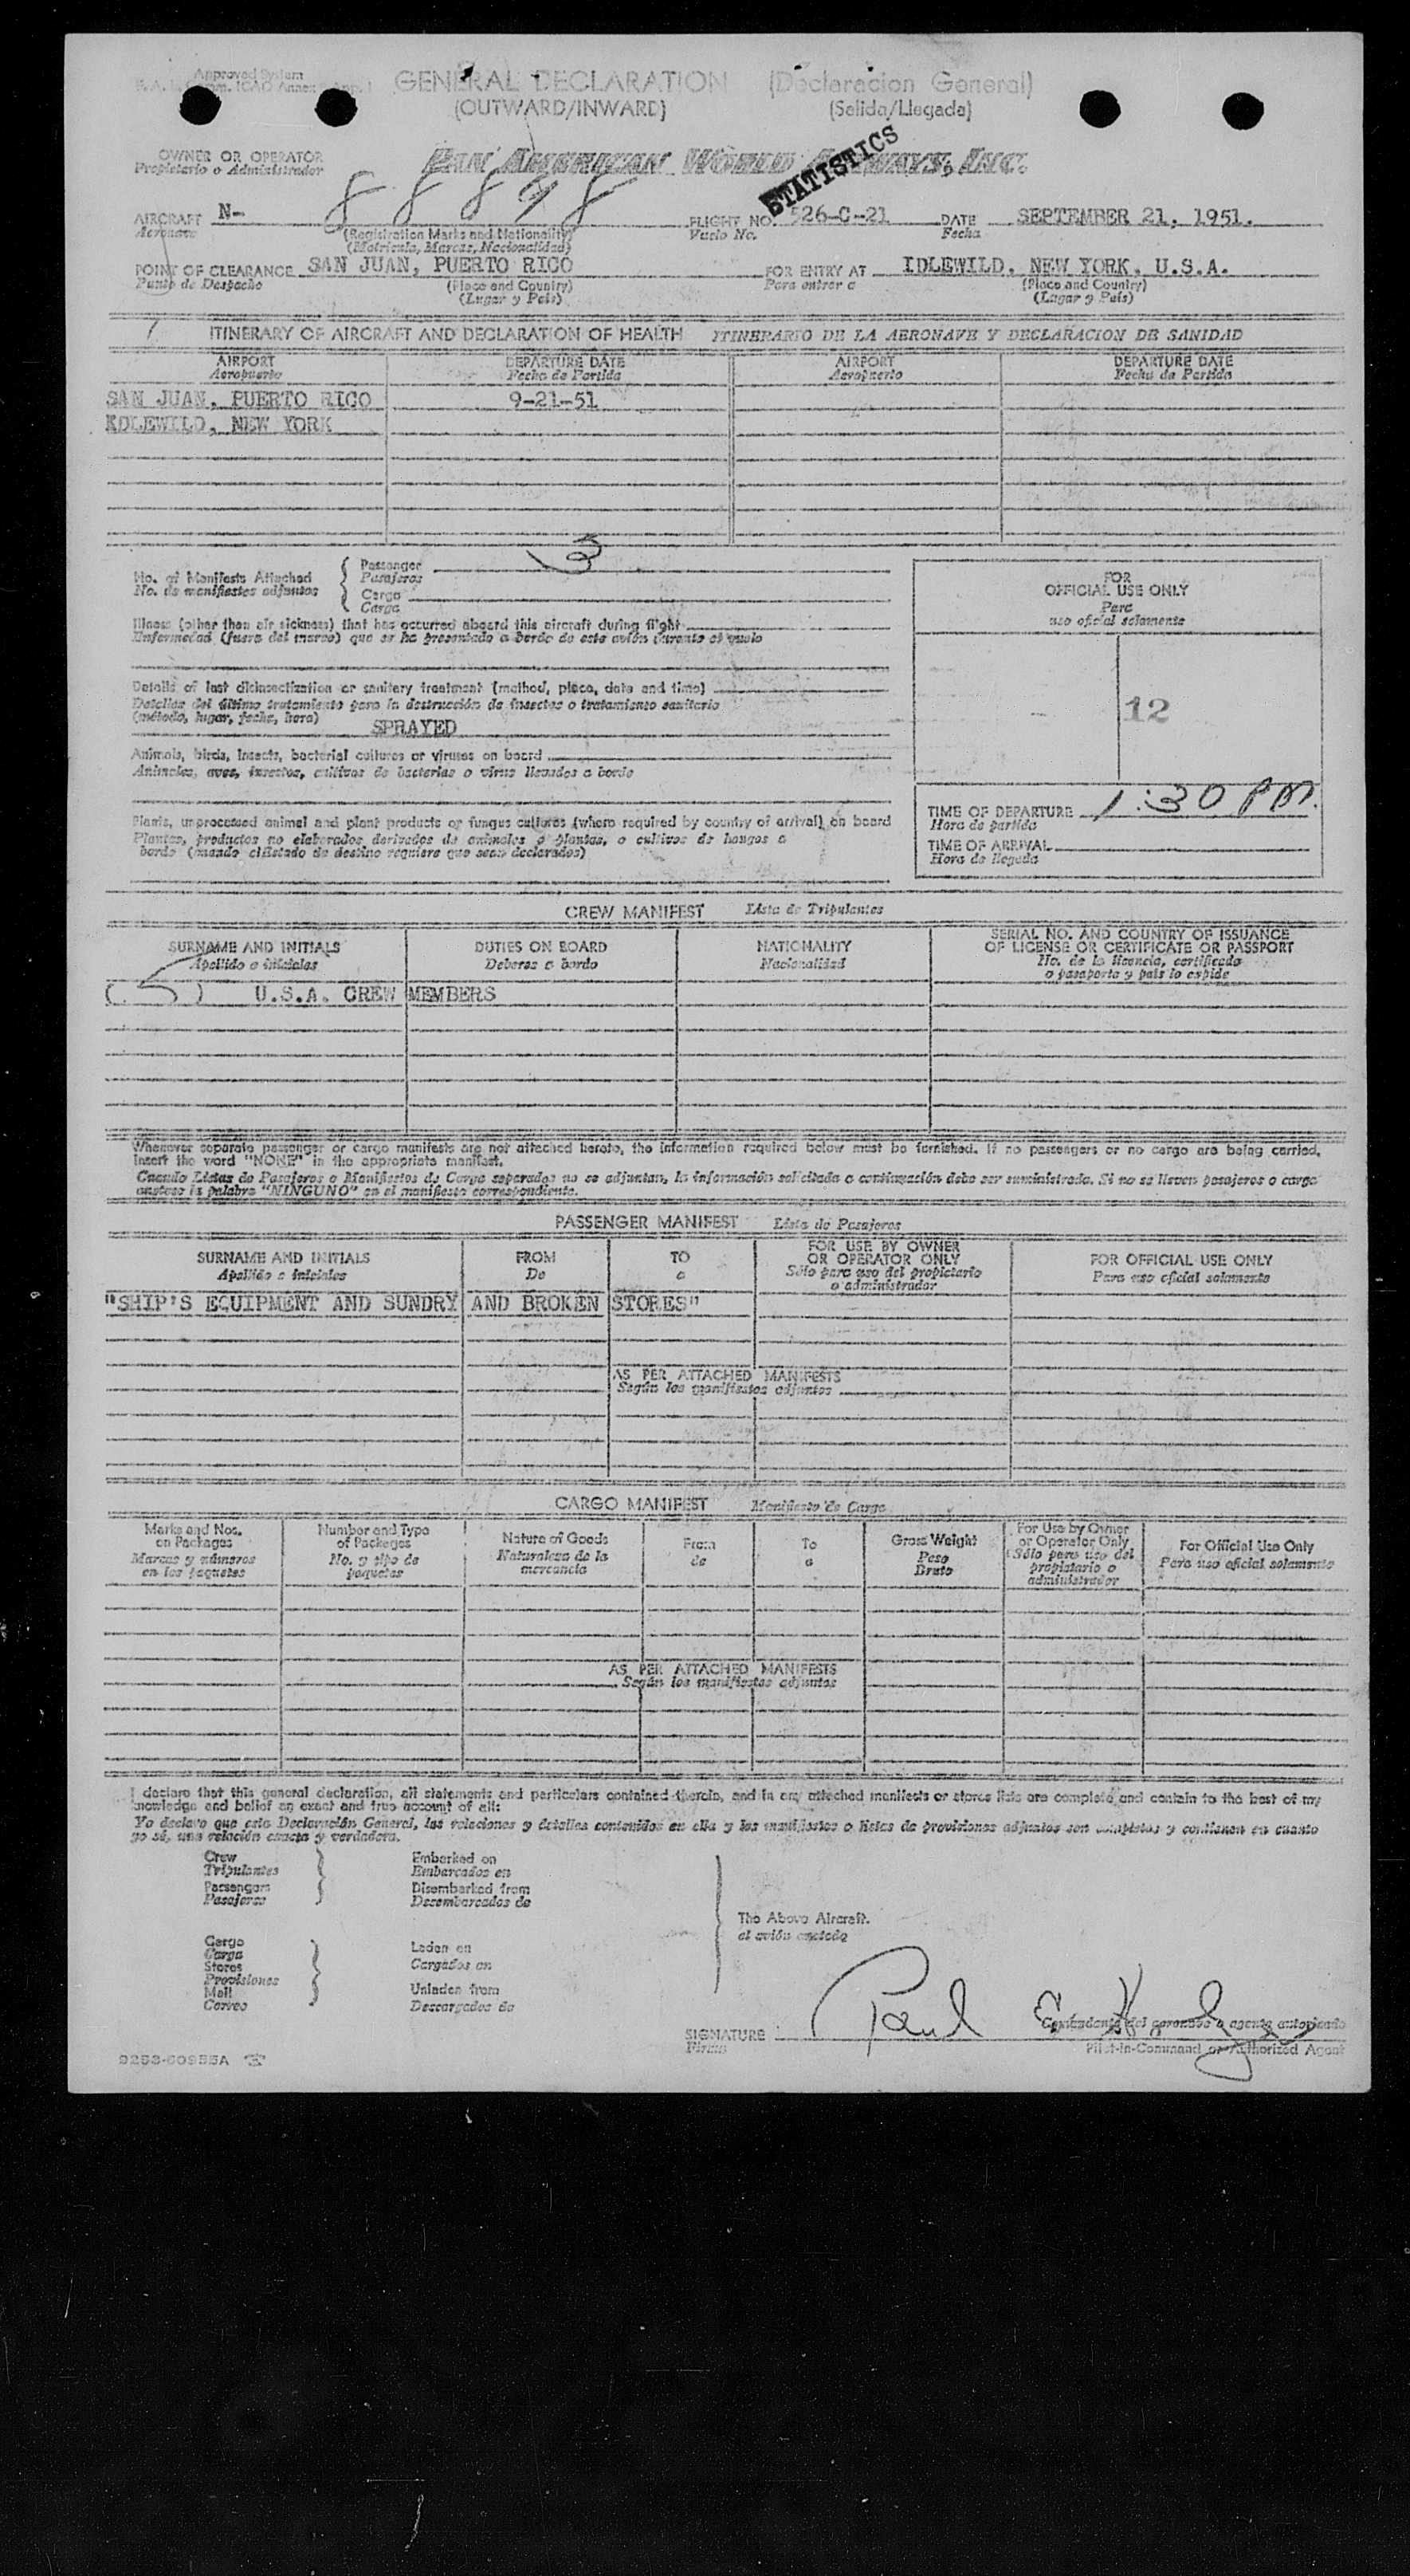 Approved System
GENERAL DECLARATION (Declaracion General)
(OUTWARD/INWARD) (Salida/Llegada)
OWNER OR OPERATOR PAN AMERICAN WORLD AIRWAYS, INC.
Propietario o Administrador
STATISTICS
AIRCRAFT N- 88898 FLIGHT NO. 526-C-21 DATE SEPTEMBER 21, 1951.
Aeronave (Registration Marks and Nationality) Vuelo No. Fecha
(Matricula, Marcas, Nacionalidad)
POINT OF CLEARANCE SAN JUAN, PUERTO RICO FOR ENTRY AT IDLEWILD, NEW YORK, U.S.A.
Punto de Despacho (Place and Country) Para entrar a (Place and Country)
(Lugar y País) (Lugar y País)
ITINERARY OF AIRCRAFT AND DECLARATION OF HEALTH ITINERARIO DE LA AERONAVE Y DECLARACION DE SANIDAD
AIRPORT DEPARTURE DATE AIRPORT DEPARTURE DATE
Aeropuerto Fecha de Partida Aeropuerto Fecha de Partida
SAN JUAN, PUERTO RICO 9-21-51
KDLEWILD, NEW YORK
No. of Manifests Attached Passenger 3
No. de manifiestos adjuntos Pasajeros
Cargo
Carga
Illness (other than air sickness) that has occurred aboard this aircraft during flight
Enfermedad (fuera del mareo) que se ha presentado a bordo de este avión durante el vuelo
Details of last disinsectization or sanitary treatment (method, place, date and time)
Detalles del último tratamiento para la destrucción de insectos o tratamiento sanitario
(método, lugar, fecha, hora) SPRAYED
Animals, birds, insects, bacterial cultures or viruses on board
Animales, aves, insectos, cultivos de bacterias o virus llevados a bordo
Plants, unprocessed animal and plant products or fungus cultures (where required by country of arrival) on board
Plantas, productos no elaborados derivados de animales o plantas, o cultivos de hongos a
bordo (cuando el Estado de destino requiere que sean declarados)
FOR
OFFICIAL USE ONLY
Para
uso oficial solamente
12
TIME OF DEPARTURE 1:30 PM.
Hora de partida
TIME OF ARRIVAL
Hora de llegada
CREW MANIFEST Lista de Tripulantes
SURNAME AND INITIALS DUTIES ON BOARD NATIONALITY SERIAL NO. AND COUNTRY OF ISSUANCE
OF LICENSE OR CERTIFICATE OR PASSPORT
Apellido e iniciales Deberes a bordo Nacionalidad No. de la licencia, certificado
o pasaporte y pais lo expide
(5) U.S.A. CREW MEMBERS
Whenever separate passenger or cargo manifests are not attached hereto, the information required below must be furnished. If no passengers or no cargo are being carried,
insert the word "NONE" in the appropriate manifest.
Cuando Listas de Pasajeros o Manifiestos de Carga separados no se adjuntan, la información solicitada a continuación debe ser suministrada. Si no se llevan pasajeros o carga
anotese la palabra "NINGUNO" en el manifiesto correspondiente.
PASSENGER MANIFEST Lista de Pasajeros
SURNAME AND INITIALS FROM TO FOR USE BY OWNER
OR OPERATOR ONLY FOR OFFICIAL USE ONLY
Apellido e iniciales De a Sólo para uso del propietario
o administrador Para uso oficial solamente
"SHIP'S EQUIPMENT AND SUNDRY AND BROKEN STORES"
AS PER ATTACHED MANIFESTS
Según los manifiestos adjuntos
CARGO MANIFEST Manifiesto de Carga
Marks and Nos.
on Packages
Marcas y números
en los paquetes
Number and Type
of Packages
No. y tipo de
paquetes
Nature of Goods
Naturaleza de la
mercancia
From
de
To
a
Gross Weight
Peso
Bruto
For Use by Owner
or Operator Only
Sólo para uso del
propietario o
administrador
For Official Use Only
Para uso oficial solamente
AS PER ATTACHED MANIFESTS
Según los manifiestos adjuntos
I declare that this general declaration, all statements and particulars contained therein, and in any attached manifests or stores lists are complete and contain to the best of my
knowledge and belief an exact and true account of all:
Yo declaro que esta Declaración General, las relaciones y detalles contenidos en ella y los manifiestos o listas de provisiones adjuntos son completos y contienen en cuanto
yo sé, una relación exacta y verdadera.
Crew Embarked on
Tripulantes Embarcados en
Passengers Disembarked from
Pasajeros Desembarcados de
The Above Aircraft.
el avión anotado
Cargo Laden on
Carga
Stores Cargados en
Provisiones
Mail Unladen from
Correo Descargados de
SIGNATURE Paul E.
Firma
Comandante del aeronave o agente autorizado
Pilot-in-Command or Authorized Agent
9253-60955A